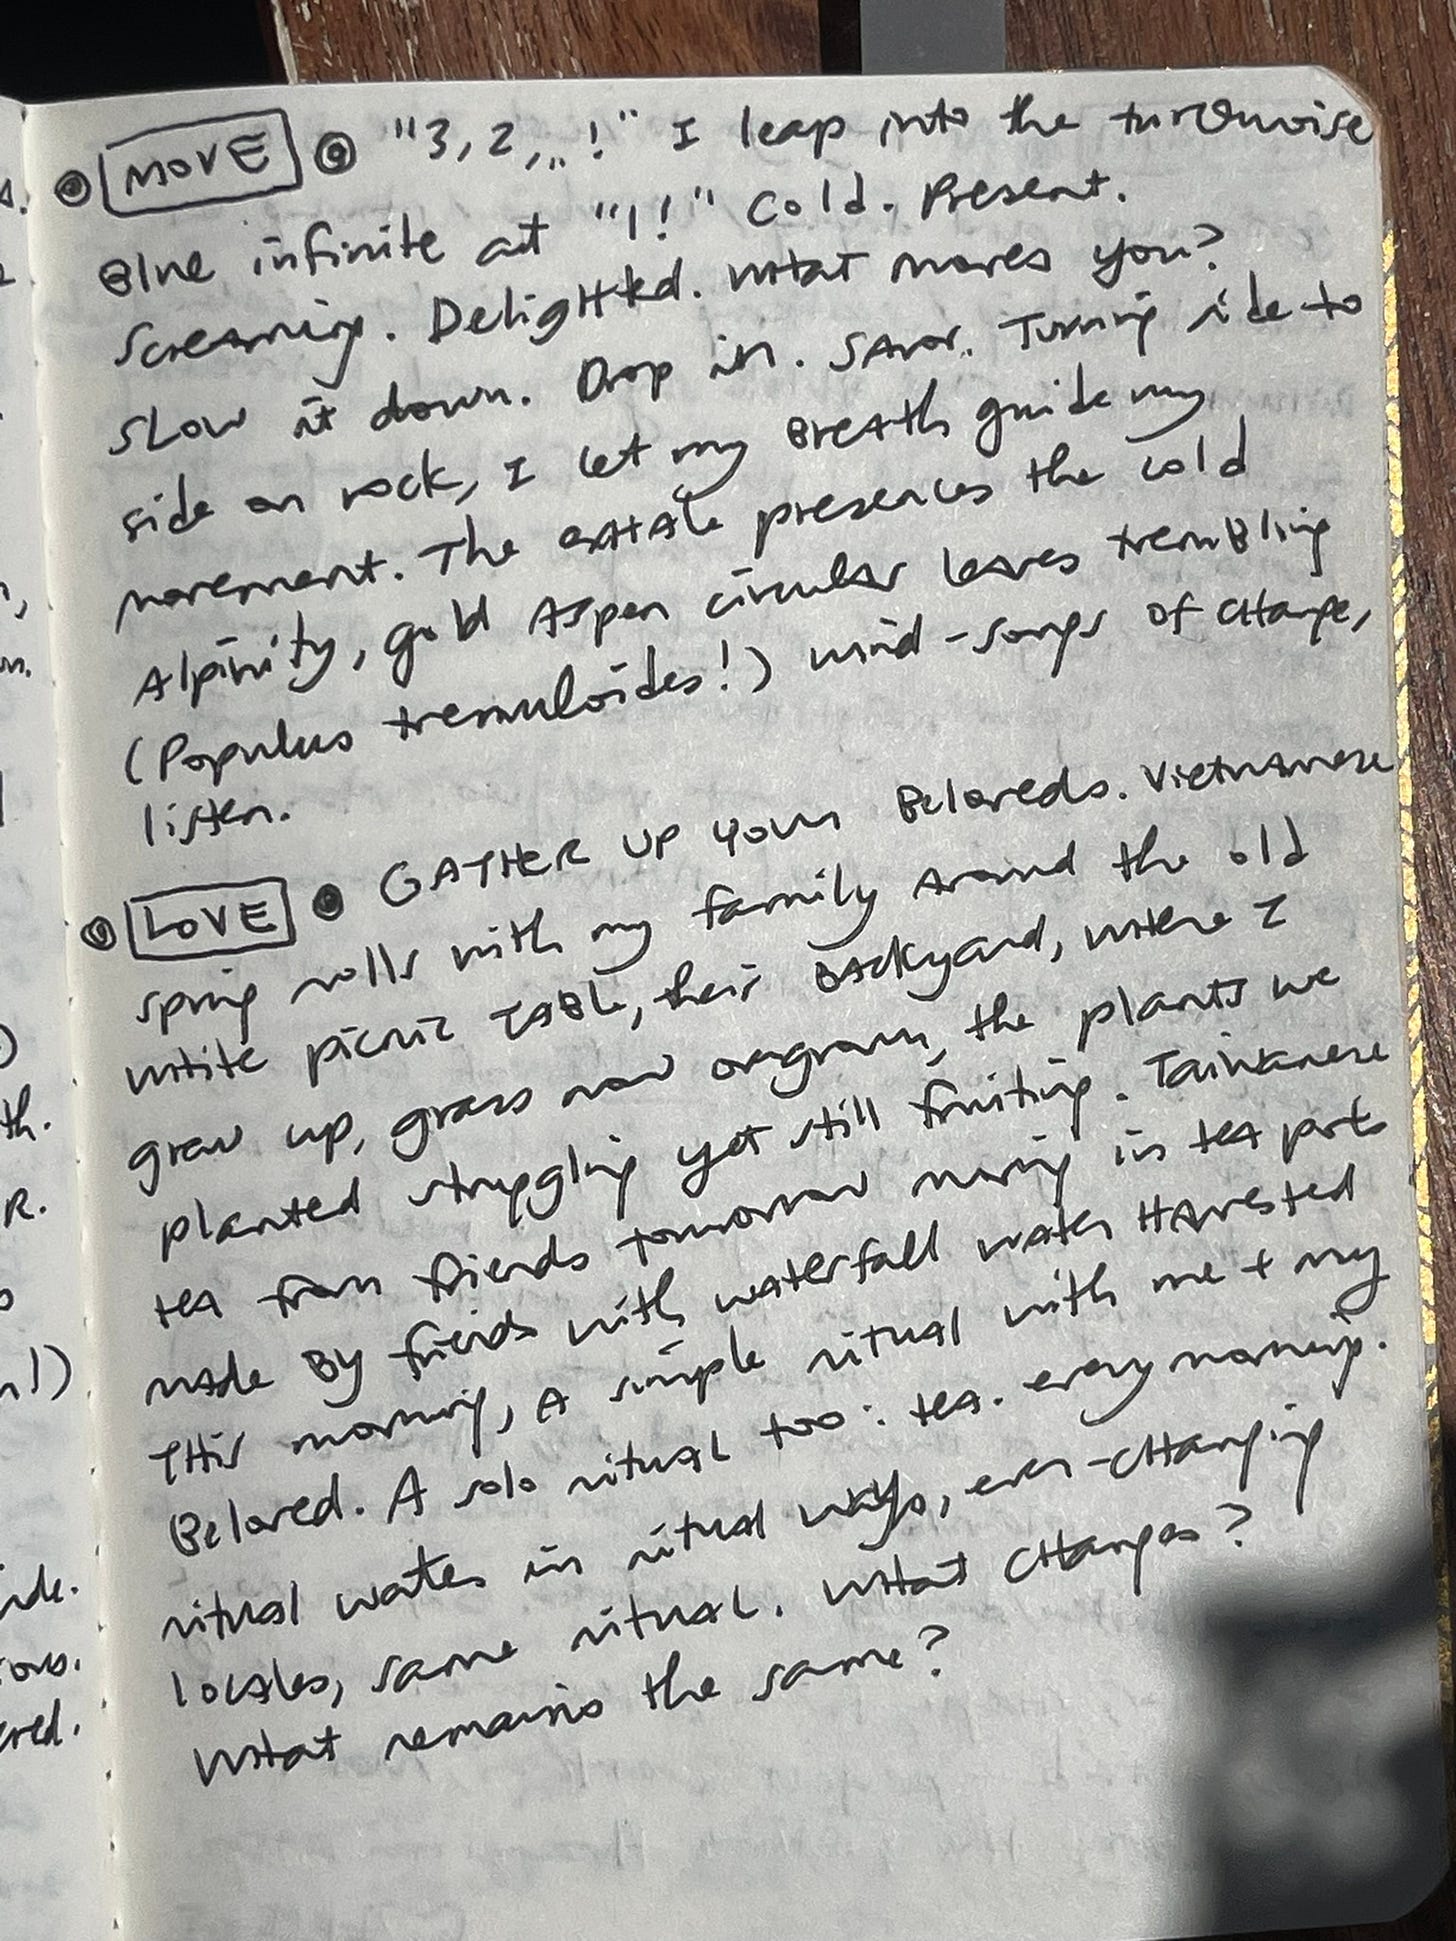 MOVE "3, 2,...!" I leap into the turquoise
Blue infinite at "1!" Cold. Present.
Screaming. Delighted. What moves you?
Slow it down. Drop in. Savor. Turning side to
side on rock, I let my Breath guide my
movement. The exhale presences the cold
Alpinity, gold Aspen circular leaves trembling
(Populus tremuloides!) wind-songs of change,
listen.
LOVE GATHER UP YOUR Beloveds. Vietnamese
spring rolls with my family around the old
white picnic TABLE, their BACKyard, where I
grew up, grass now overgrown, the plants we
planted struggling yet still fruiting. Taiwanese
tea from friends tomorrow moving in tea pots
made By friends with waterfall water Harvested
THis morning, A simple ritual with me + my
Beloved. A solo ritual too: tea. every morning.
ritual waters in ritual ways, ever-changing
locales, same ritual. What changes?
What remains the same?
4.
th.
R.
ered.